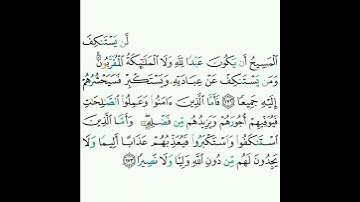 لَّن يَسْتَنكِفَ
ٱلْمَسِيحُ أَن يَكُونَ عَبْدًا لِّلَّهِ وَلَا ٱلْمَلَٰٓئِكَةُ ٱلْمُقَرَّبُونَ ۚ
وَمَن يَسْتَنكِفْ عَنْ عِبَادَتِهِۦ وَيَسْتَكْبِرْ فَسَيَحْشُرُهُمْ
إِلَيْهِ جَمِيعًا ١٧٢ فَأَمَّا ٱلَّذِينَ ءَامَنُوا۟ وَعَمِلُوا۟ ٱلصَّٰلِحَٰتِ
فَيُوَفِّيهِمْ أُجُورَهُمْ وَيَزِيدُهُم مِّن فَضْلِهِۦ ۖ وَأَمَّا ٱلَّذِينَ
ٱسْتَنكَفُوا۟ وَٱسْتَكْبَرُوا۟ فَيُعَذِّبُهُمْ عَذَابًا أَلِيمًا وَلَا
يَجِدُونَ لَهُم مِّن دُونِ ٱللَّهِ وَلِيًّا وَلَا نَصِيرًا ١٧٣